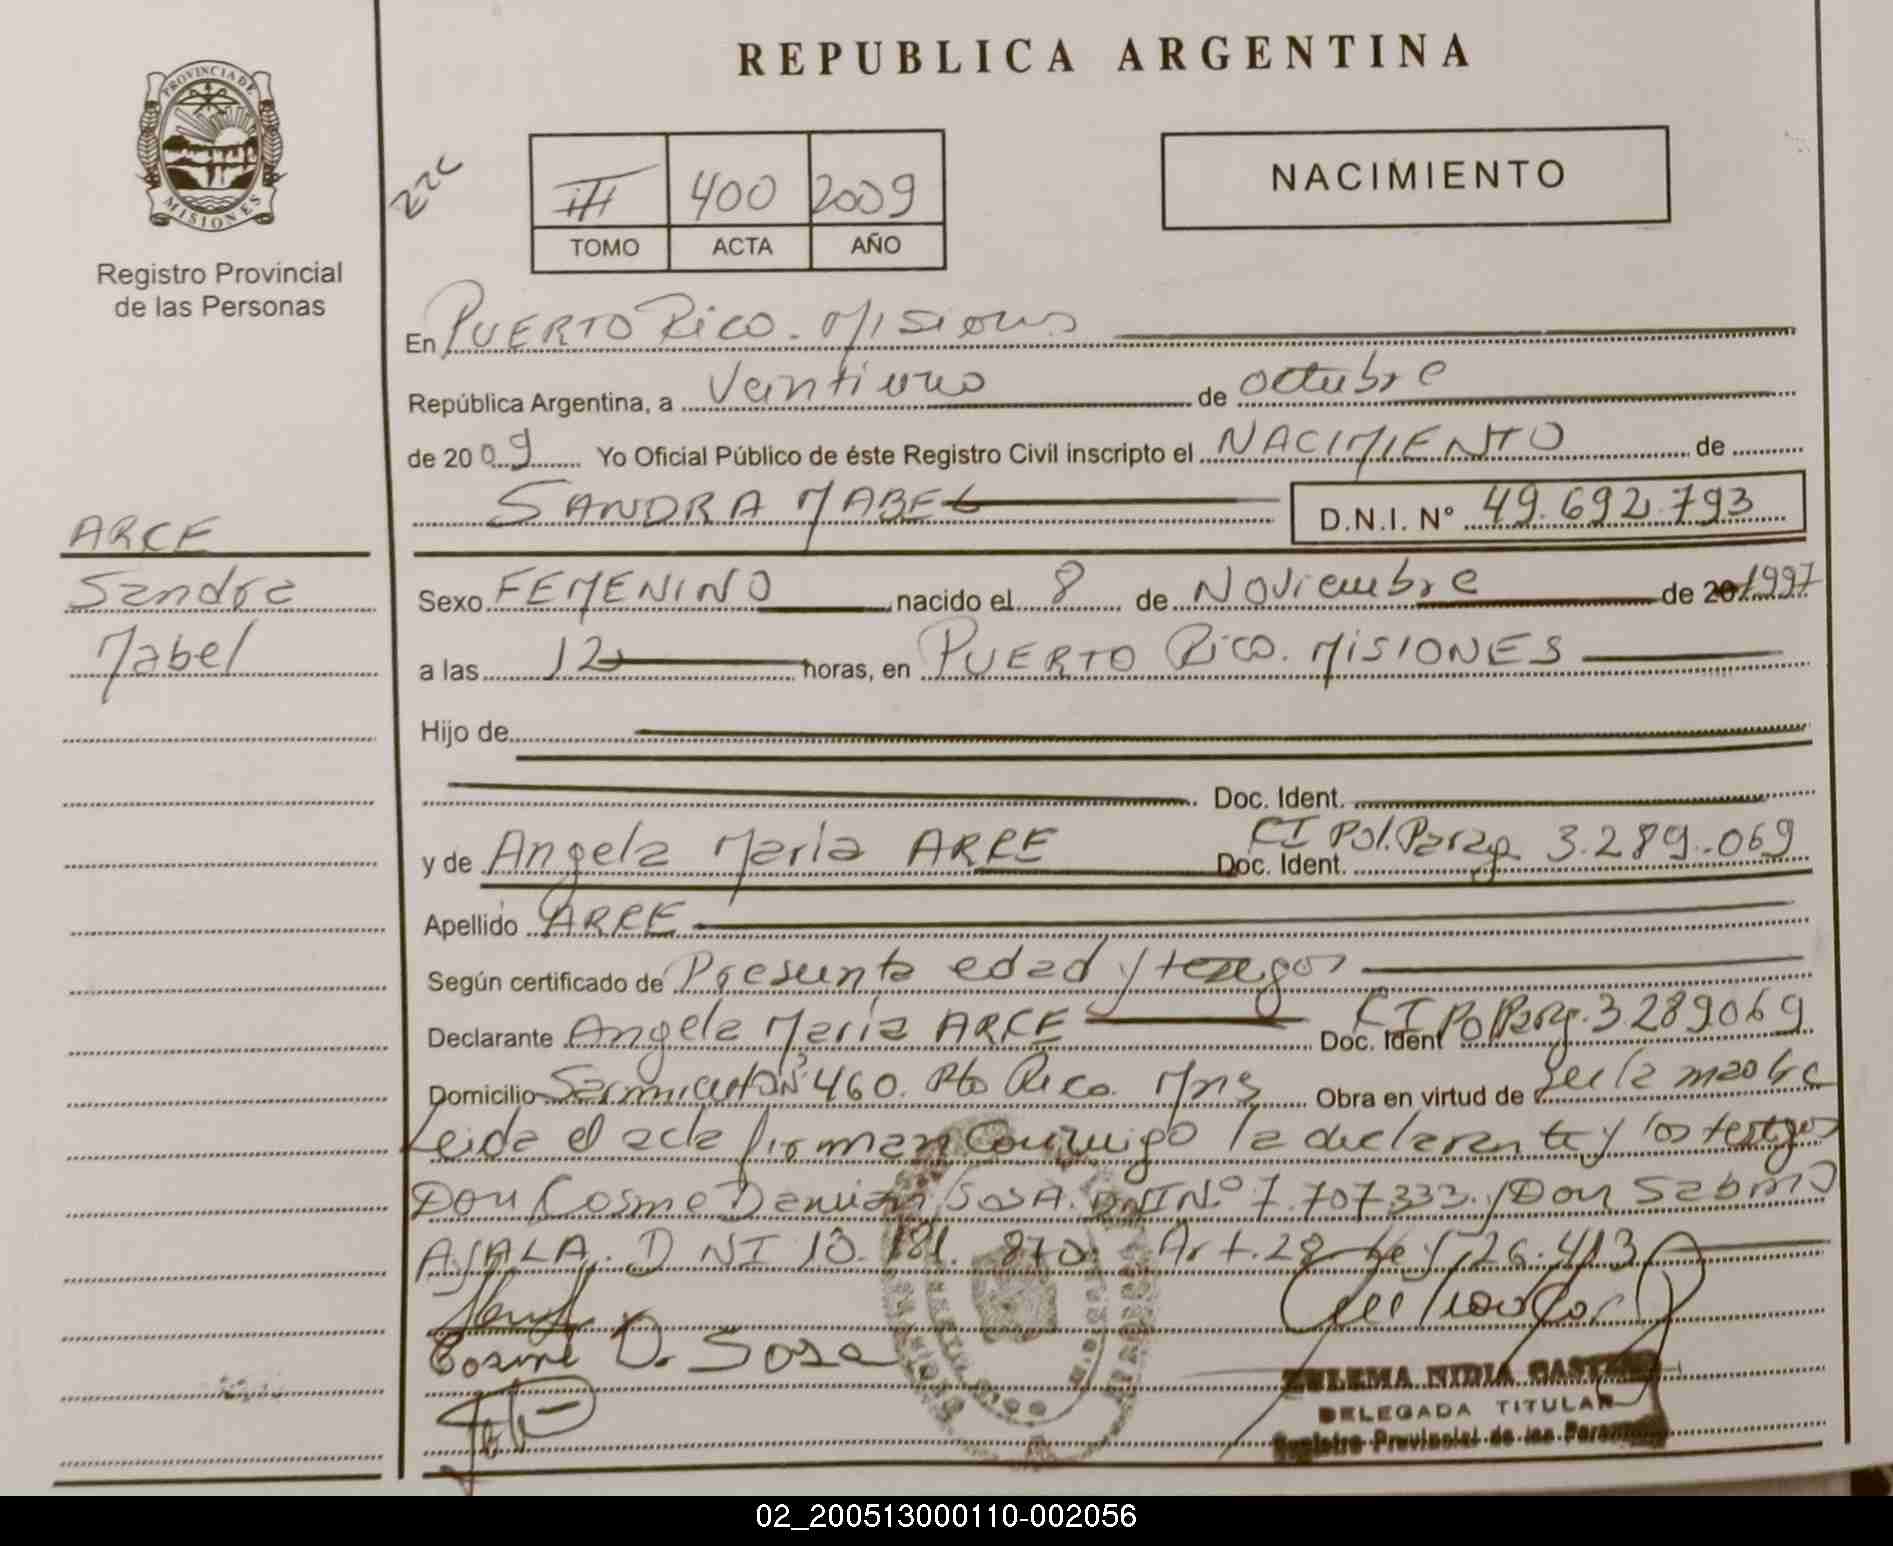 REPUBLICA ARGENTINA
PROVINCIA DE
MISIONES
Registro Provincial
de las Personas
III 400 2009
TOMO ACTA AÑO
NACIMIENTO
En PUERTO RICO. Misiones
República Argentina, a Veintiuno de octubre
de 2009 Yo Oficial Público de éste Registro Civil inscripto el NACIMIENTO de
SANDRA MABEL D.N.I. Nº 49.692.793
ARCE
Sandra
Mabel
Sexo FEMENINO nacido el 8 de Noviembre de 20 1997
a las 12 horas, en PUERTO RICO. MISIONES
Hijo de
Doc. Ident.
y de Angela María ARCE Doc. Ident. CI Pol. Parag 3.289.069
Apellido ARCE
Según certificado de Presunta edad y testigos
Declarante Angela María ARCE Doc. Ident CI Pol Parg. 3289069
Domicilio Sarmiento Nº 460. Pto Rico. Mns Obra en virtud de ser la madre
Leida el acta firman conmigo la declarante y los testigos
Don Cosme Damian SOSA. DNI Nº 7.707.333. y Don Sabino
AYALA. DNI 10.181.870. Art. 28 Ley 26.413
Cosme D. Sosa
ZULEMA NIDIA
DELEGADA TITULAR
Registro Provincial de las Personas
02_200513000110-002056